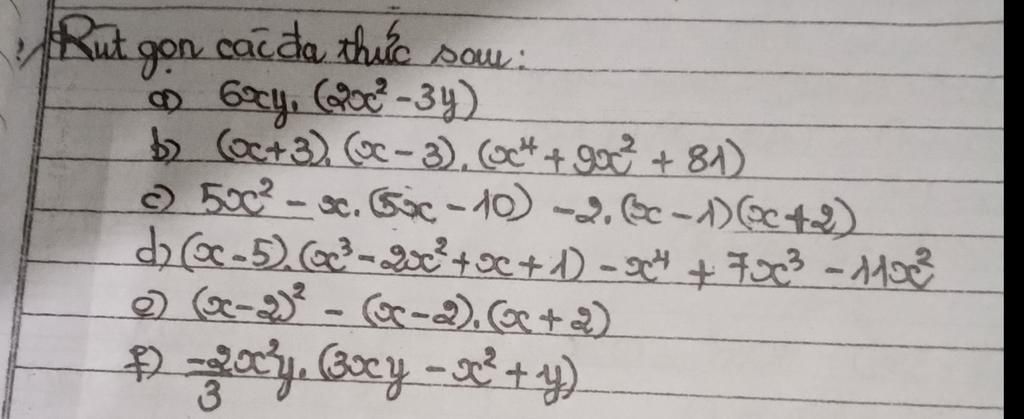 Rút gọn các đa thức sau:
a) 6xy.(2x² - 3y)
b) (x+3).(x-3).(x⁴ + 9x² + 81)
c) 5x² - x.(5x - 10) - 2.(x - 1)(x+2)
d) (x-5).(x³ - 2x² + x + 1) - x⁴ + 7x³ - 11x²
e) (x-2)² - (x-2).(x+2)
f) -2/3 x²y.(3xy - x² + y)